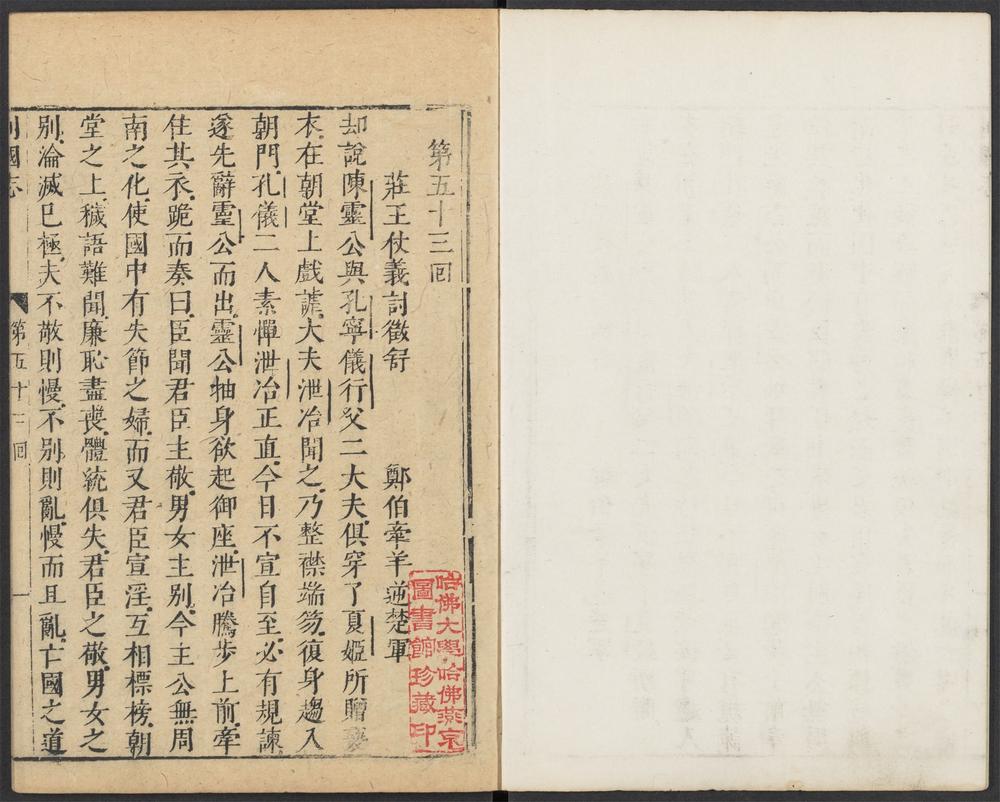 第五十三回
莊王仗義討徵舒　鄭伯牽羊逆楚軍
却說陳靈公與孔寧儀行父二大夫俱穿了夏姬所贈褻
衣在朝堂上戲謔大夫泄冶聞之乃整襟端笏復身趨入
朝門孔儀二人素憚泄冶正直今日不宣自至必有規諫
遂先辭靈公而出靈公抽身欲起御座泄冶騰步上前牽
住其衣跪而奏曰臣聞君臣主敬男女主別今主公無周
南之化使國中有失節之婦而又君臣宣淫互相標榜朝
堂之上穢語難聞廉恥盡喪體統俱失君臣之敬男女之
別淪滅已極夫不敬則慢不別則亂慢而且亂亡國之道
列國志
第五十三回
一
哈佛大學哈佛燕京
圖書館珍藏印